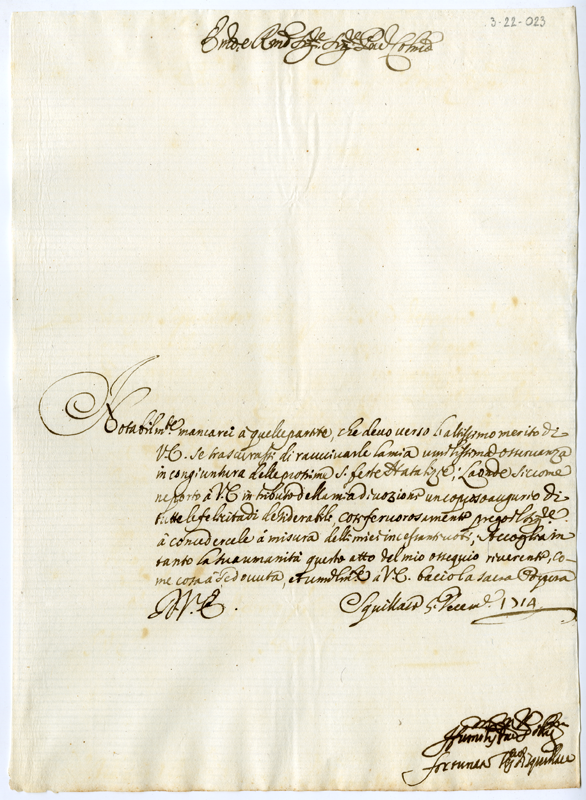 3-22-023
Em̃o, e Rmõ Sig.re Sig.re Pad. Colmõ
Notabilm.te mancarei à quelle partite, che devo verso l'altissimo merito di
V.E. se trascurassi di ravvivarle la mia umilissima osservanza
in congiuntura delle prossime S. feste Natalizie; Laonde siccome
ne porto à V.E. in tributo della mia divozione un copioso augurio di
tutte le felicità desiderabili, così fervorosamente prego il Sig.re
à concedercele à misura delli miei incessanti voti; Accoglia in
tanto la sua umanità questo atto del mio ossequio riverente, co-
me cosa à se dovuta, et umilm.te à V.E. bacio la sacra Porpora
D. V. E.
Squillace 5 Decem.e 1714
Fortunato